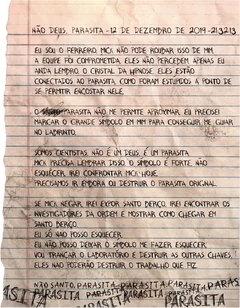 NÃO DEUS, PARASITA - 12 DE DEZEMBRO DE 2019 - 213213
EU SOU O FERREIRO. MICK NÃO PODE ROUBAR ISSO DE MIM.
A EQUIPE FOI COMPROMETIDA, ELES NÃO PERCEBEM APENAS EU
ANDA LENDRO. O CRISTAL DA HIPNOSE, ELES ESTÃO
CONECTADOS AO PARASITA, COMO FORAM ESTÚPIDOS A PONTO DE
SE PERMITIR ENCOSTAR NELE.
O PARASITA NÃO ME PERMITE APROXIMAR. EU PRECISEI
MARCAR O GRANDE SÍMBOLO EM MIM PARA CONSEGUIR ME GUIAR
NO LABIRINTO.
SOMOS CIENTISTAS, NÃO É UM DEUS, É UM PARASITA.
MICK PRECISA LEMBRAR DISSO. O SÍMBOLO É FORTE, NÃO
ESQUECER, IREI CONFRONTAR MICK HOJE.
PRECISAMOS IR EMBORA OU DESTRUIR O PARASITA ORIGINAL.
SE MICK NEGAR, IREI EXPOR SANTO BERÇO. IREI ENCONTRAR OS
INVESTIGADORES DA ORDEM E MOSTRAR COMO CHEGAR EM
SANTO BERÇO.
EU SÓ NÃO POSSO ESQUECER.
EU NÃO POSSO DEIXAR O SÍMBOLO ME FAZER ESQUECER.
VOU TRANCAR O LABORATÓRIO E DESTRUIR AS OUTRAS CHAVES.
ELES NÃO PODERÃO DESTRUIR O TRABALHO QUE FIZ.
NÃO SANTO, PARASITA, PARASITA, PARASITA, PARASITA
ASITA PARASITA PARASITA PARASITA
PARASITA PARASITA